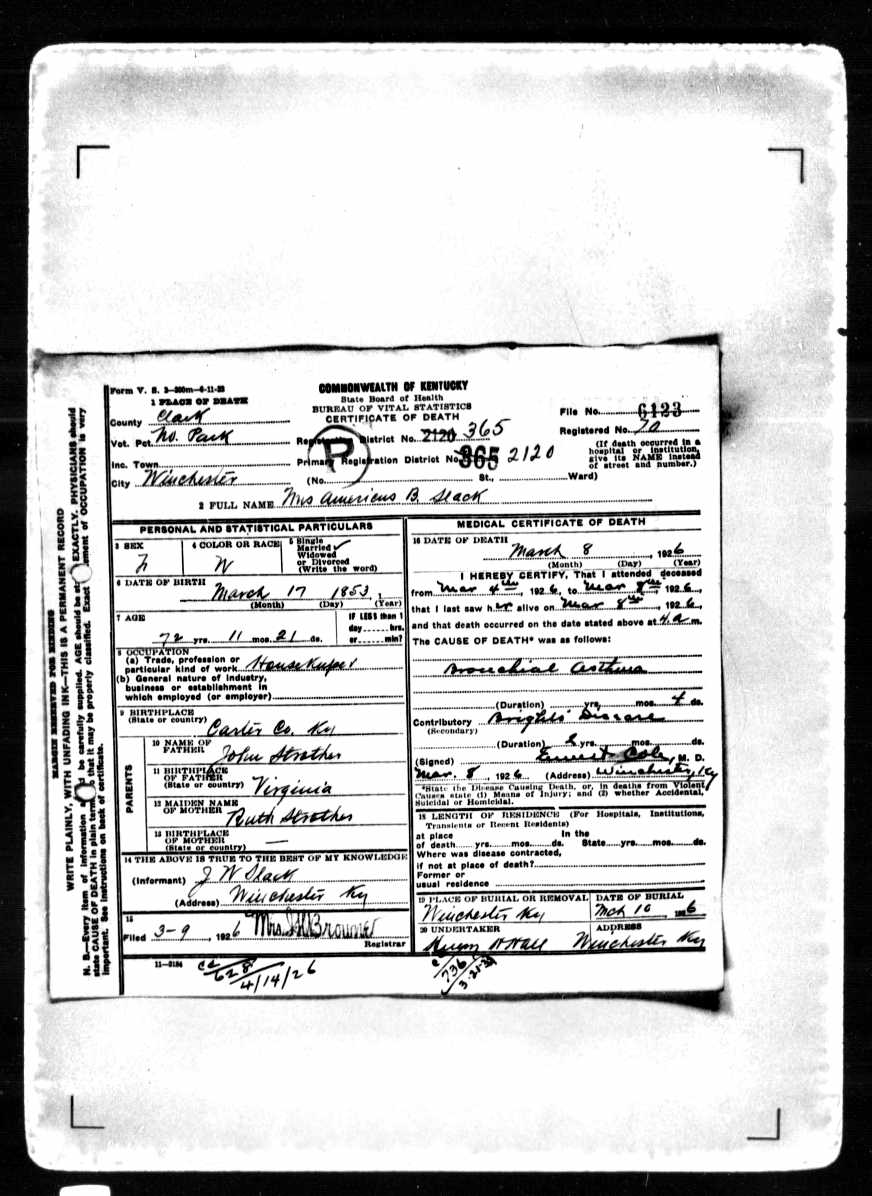 Form V. S. 3—300m—6-11-23
COMMONWEALTH OF KENTUCKY
State Board of Health
BUREAU OF VITAL STATISTICS
CERTIFICATE OF DEATH
1 PLACE OF DEATH
County Clark
File No. 6123
Vot. Pct. No. Park
Registration District No. 2120 365
Registered No. 70
R
Inc. Town
Primary Registration District No. 365 2120
(If death occurred in a hospital or institution, give its NAME instead of street and number.)
City Winchester (No. St., Ward)
2 FULL NAME Mrs Americus B. Slack
PERSONAL AND STATISTICAL PARTICULARS
3 SEX F
4 COLOR OR RACE W
5 Single
Married ✓
Widowed
or Divorced
(Write the word)
6 DATE OF BIRTH
March 17 1853
(Month) (Day) (Year)
7 AGE
72 yrs. 11 mos. 21 ds.
IF LESS than 1
day hrs.
or min?
8 OCCUPATION
(a) Trade, profession or
particular kind of work Housekeeper
(b) General nature of industry,
business or establishment in
which employed (or employer)
9 BIRTHPLACE
(State or country) Carter Co. Ky
PARENTS
10 NAME OF
FATHER John Strother
11 BIRTHPLACE
OF FATHER
(State or country) Virginia
12 MAIDEN NAME
OF MOTHER Ruth Strother
13 BIRTHPLACE
OF MOTHER —
(State or country)
14 THE ABOVE IS TRUE TO THE BEST OF MY KNOWLEDGE
(Informant) J W Slack
(Address) Winchester Ky
15
Filed 3-9, 1926 Mrs. Browne
Registrar
11—3184
628
4/14/26
MEDICAL CERTIFICATE OF DEATH
16 DATE OF DEATH
March 8, 1926
(Month) (Day) (Year)
I HEREBY CERTIFY, That I attended deceased
from Mar 4th, 1926, to Mar 8th, 1926,
that I last saw her alive on Mar 8th, 1926,
and that death occurred on the date stated above at 4. a m.
The CAUSE OF DEATH* was as follows:
Bronchial Asthma
(Duration) yrs. mos. 4 ds.
Contributory Brights Disease
(Secondary)
(Duration) 2 yrs. mos. ds.
(Signed) Ernest Cole, M. D.
Mar. 8, 1926 (Address) Winchester, Ky
*State the Disease Causing Death, or, in deaths from Violent
Causes state (1) Means of Injury; and (2) whether Accidental,
Suicidal or Homicidal.
18 LENGTH OF RESIDENCE (For Hospitals, Institutions,
Transients or Recent Residents)
at place In the
of death yrs. mos. ds. State yrs. mos. ds.
Where was disease contracted,
if not at place of death?
Former or
usual residence
19 PLACE OF BURIAL OR REMOVAL
Winchester Ky
DATE OF BURIAL
Mch 10 1926
20 UNDERTAKER
Hall
ADDRESS
Winchester Ky
736
MARGIN RESERVED FOR BINDING
WRITE PLAINLY, WITH UNFADING INK—THIS IS A PERMANENT RECORD
N. B.—Every item of information be carefully supplied. AGE should be EXACTLY. PHYSICIANS should
state CAUSE OF DEATH in plain that it may be properly classified. Exact of OCCUPATION is very
important. See instructions on back of certificate.